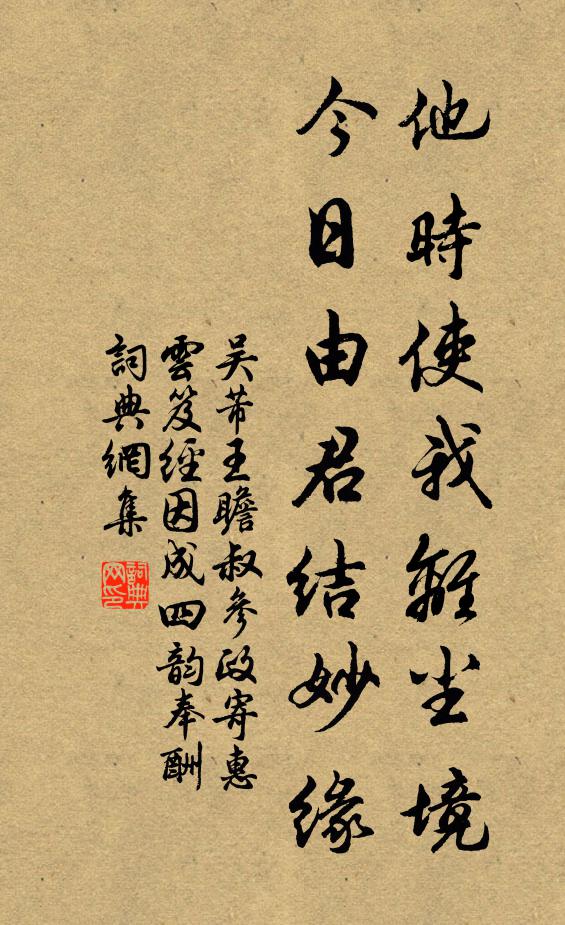 他時使我離坐境
今日由君結妙緣
吴芾王瞻叔參政寄惠
雲笈經因成四韵奉酬
詞典網集
詞典网印